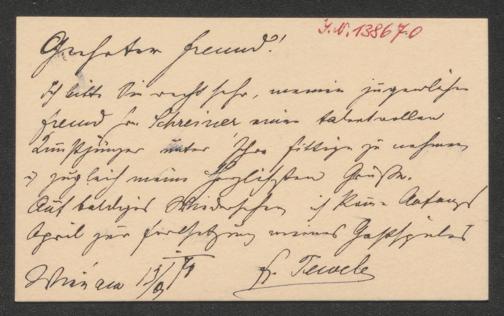 J.N. 138670
Geehrter Freund!
Ich bitte Sie recht sehr, meinen jugendlichen
Freund Hrn Schreiner einen talentvollen
Kunstjünger unter Ihre Fittige zu nehmen
u zugleich meine herzlichsten Grüße.
Auf baldiges Wiedersehen ich komme Anfangs
April zur Fortsetzung meines Gastspieles
Wien
F. Tewele